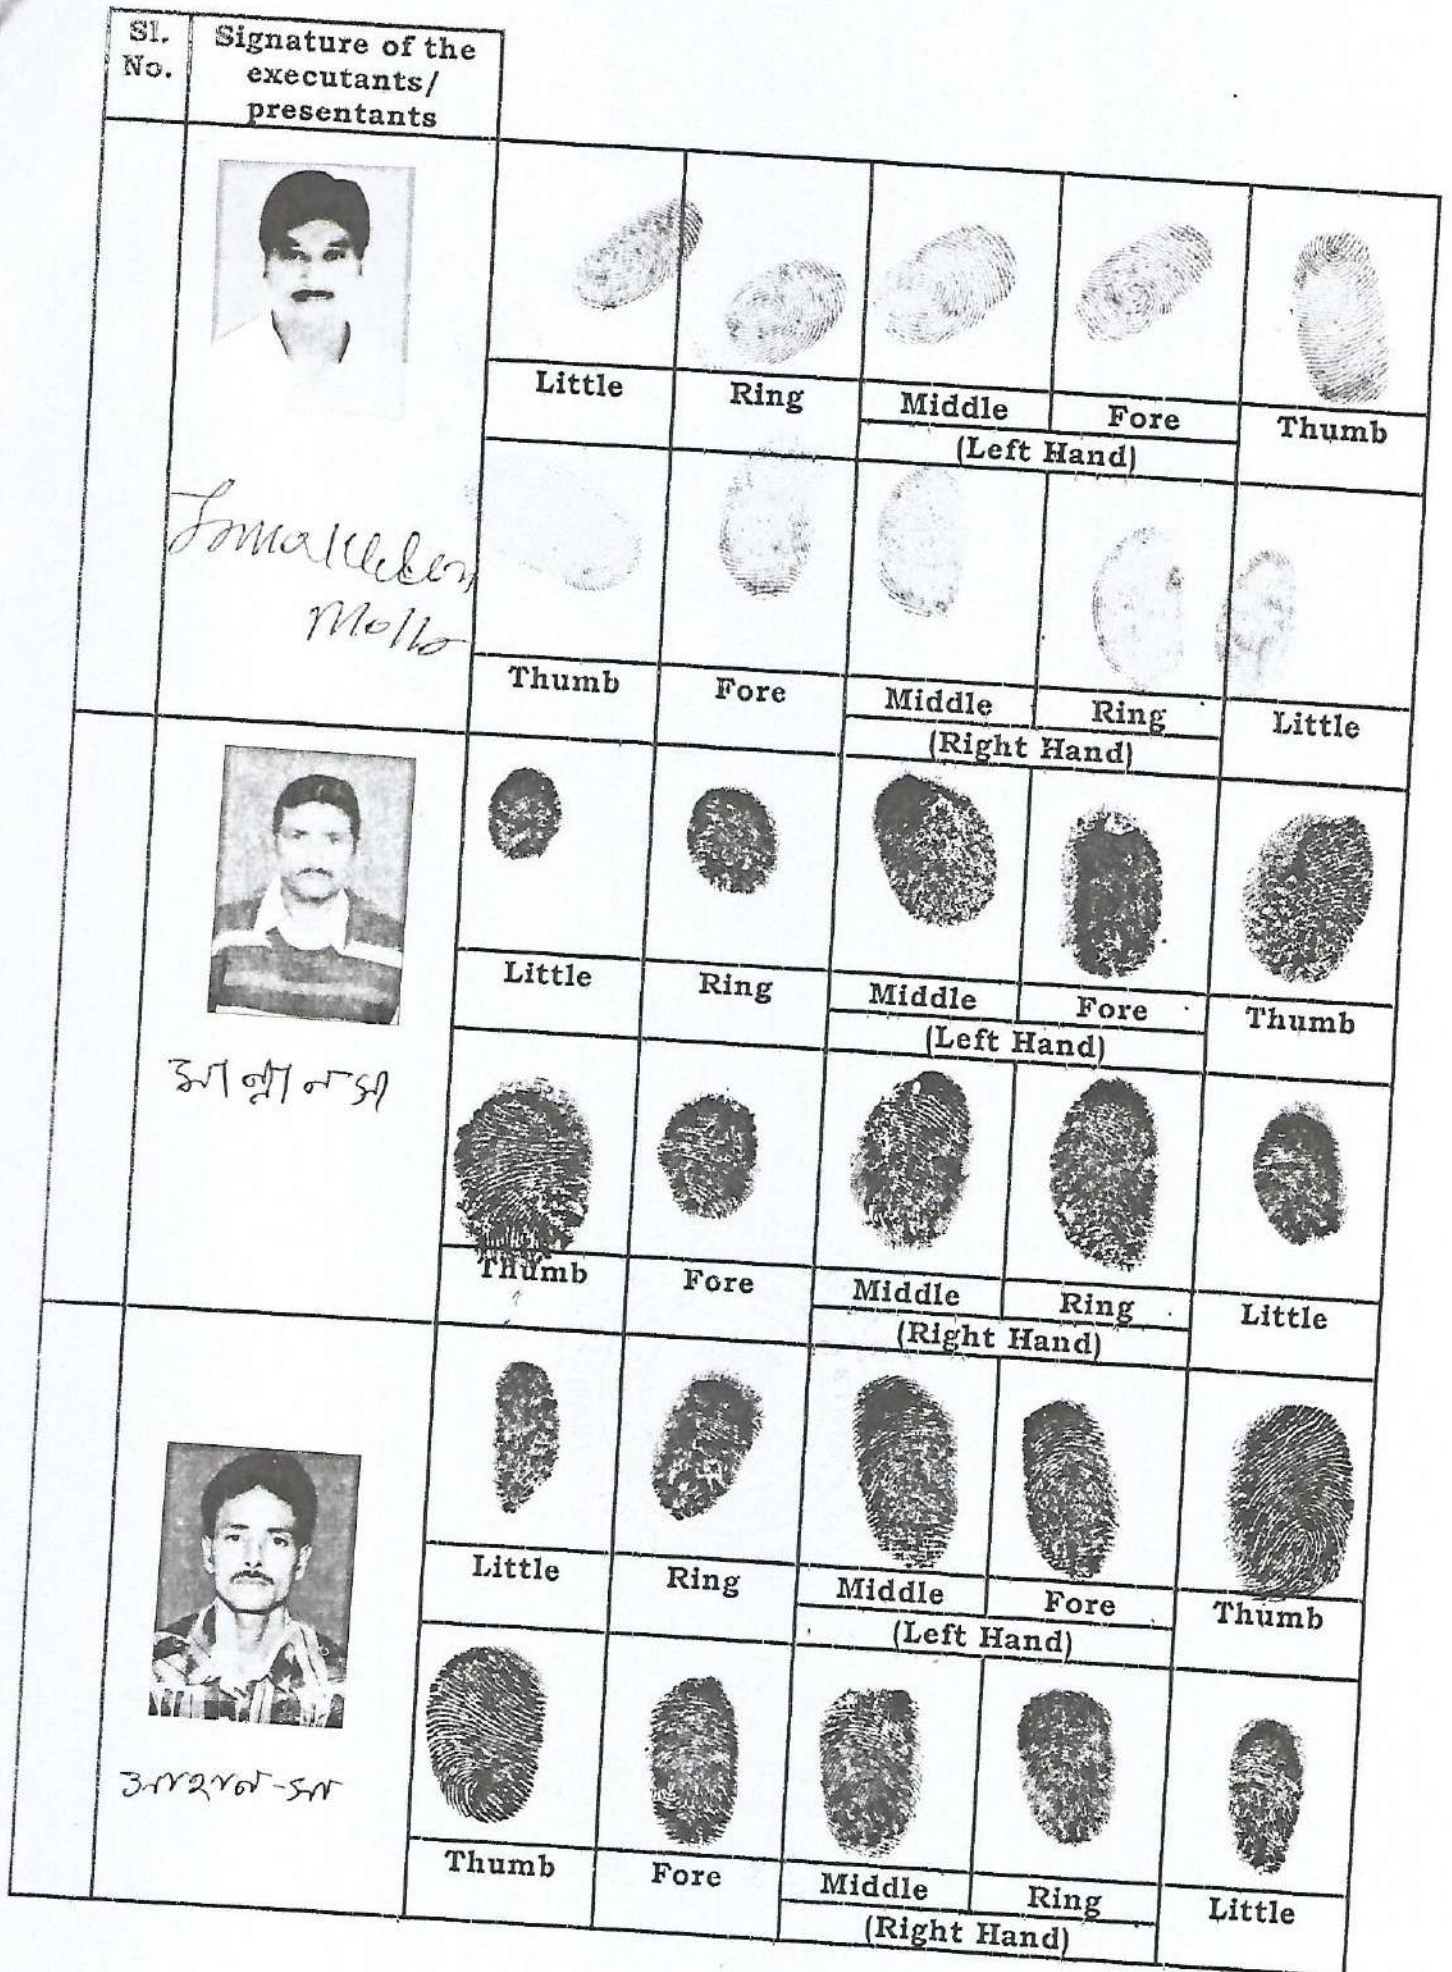 Sl.
No.
Signature of the
executants/
presentants
Little Ring Middle Fore Thumb
(Left Hand)
Molla
Thumb Fore Middle Ring Little
(Right Hand)
Little Ring Middle Fore Thumb
(Left Hand)
Thumb Fore Middle Ring Little
(Right Hand)
Little Ring Middle Fore Thumb
(Left Hand)
Thumb Fore Middle Ring Little
(Right Hand)